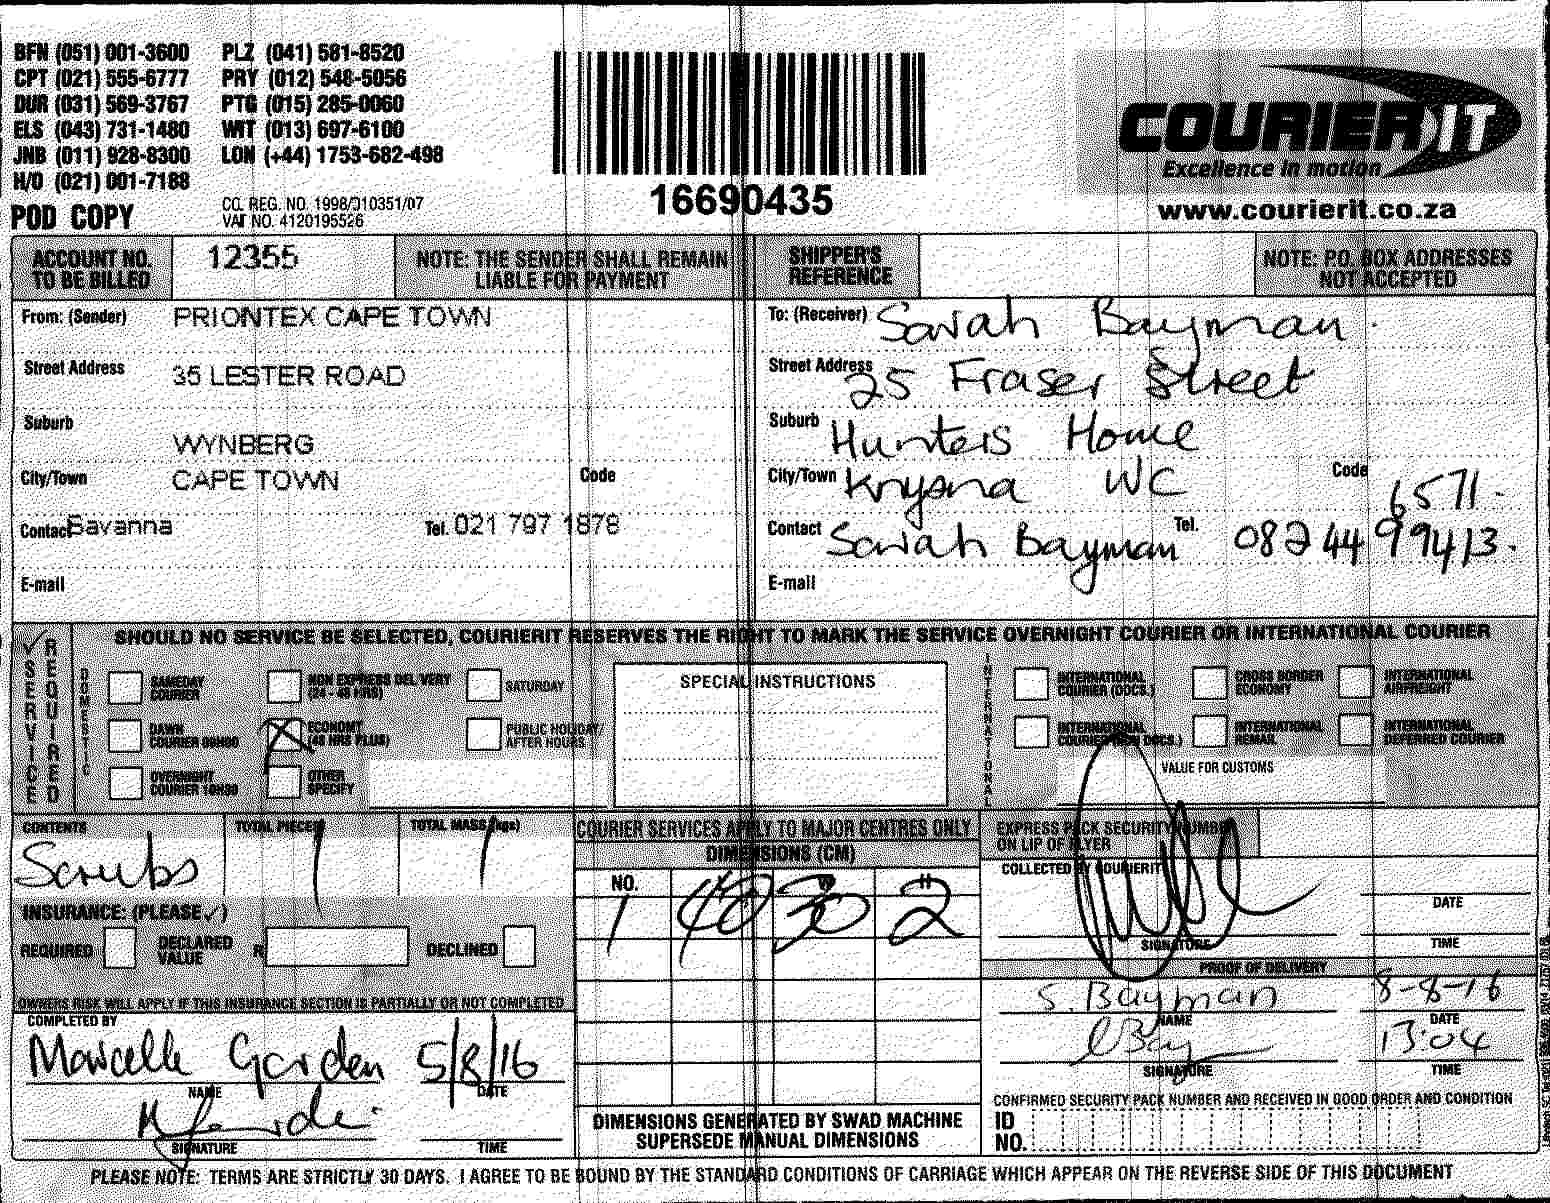 BFN (051) 001-3600 PLZ (041) 581-8520
CPT (021) 555-6777 PRY (012) 548-5056
DUR (031) 569-3767 PTG (015) 285-0060
ELS (043) 731-1480 WIT (013) 697-6100
JNB (011) 928-8300 LON (+44) 1753-682-498
H/O (021) 001-7188
POD COPY
CO. REG. NO. 1998/010351/07
VAT NO. 4120195526
16690435
COURIER IT
Excellence in motion
www.courierit.co.za
ACCOUNT NO. TO BE BILLED 12355
NOTE: THE SENDER SHALL REMAIN LIABLE FOR PAYMENT
SHIPPER'S REFERENCE
NOTE: P.O. BOX ADDRESSES NOT ACCEPTED
From: (Sender) PRIONTEX CAPE TOWN
Street Address 35 LESTER ROAD
Suburb WYNBERG
City/Town CAPE TOWN Code
Contact Savanna Tel. 021 797 1878
E-mail
To: (Receiver) Sarah Bayman.
Street Address 25 Fraser Street
Suburb Hunters Home
City/Town Knysna WC Code 6571.
Contact Sarah Bayman Tel. 0824499413.
E-mail
SERVICE REQUIRED
SHOULD NO SERVICE BE SELECTED, COURIERIT RESERVES THE RIGHT TO MARK THE SERVICE OVERNIGHT COURIER OR INTERNATIONAL COURIER
DOMESTIC
SAMEDAY COURIER
NON EXPRESS DELIVERY (24 - 48 HRS)
SATURDAY
DAWN COURIER 09H00
ECONOMY (48 HRS PLUS)
PUBLIC HOLIDAY/ AFTER HOURS
OVERNIGHT COURIER 10H30
OTHER SPECIFY
SPECIAL INSTRUCTIONS
INTERNATIONAL
INTERNATIONAL COURIER (DOCS.)
CROSS BORDER ECONOMY
INTERNATIONAL AIRFREIGHT
INTERNATIONAL COURIER (NON DOCS.)
INTERNATIONAL REMAIL
INTERNATIONAL DEFERRED COURIER
VALUE FOR CUSTOMS
CONTENTS Scrubs
TOTAL PIECES 1
TOTAL MASS (kgs) 1
INSURANCE: (PLEASE ✓)
REQUIRED DECLARED VALUE R DECLINED
OWNERS RISK WILL APPLY IF THIS INSURANCE SECTION IS PARTIALLY OR NOT COMPLETED
COMPLETED BY
Marcelle Garden 5/8/16
NAME DATE
SIGNATURE TIME
COURIER SERVICES APPLY TO MAJOR CENTRES ONLY
DIMENSIONS (CM)
NO. L W H
1 40 30 2
DIMENSIONS GENERATED BY SWAD MACHINE
SUPERSEDE MANUAL DIMENSIONS
EXPRESS PACK SECURITY NUMBER
ON LIP OF FLYER
COLLECTED BY COURIERIT
DATE
SIGNATURE TIME
PROOF OF DELIVERY
S. Bayman 8-8-16
NAME DATE
13:04
SIGNATURE TIME
CONFIRMED SECURITY PACK NUMBER AND RECEIVED IN GOOD ORDER AND CONDITION
ID NO.
PLEASE NOTE: TERMS ARE STRICTLY 30 DAYS. I AGREE TO BE BOUND BY THE STANDARD CONDITIONS OF CARRIAGE WHICH APPEAR ON THE REVERSE SIDE OF THIS DOCUMENT